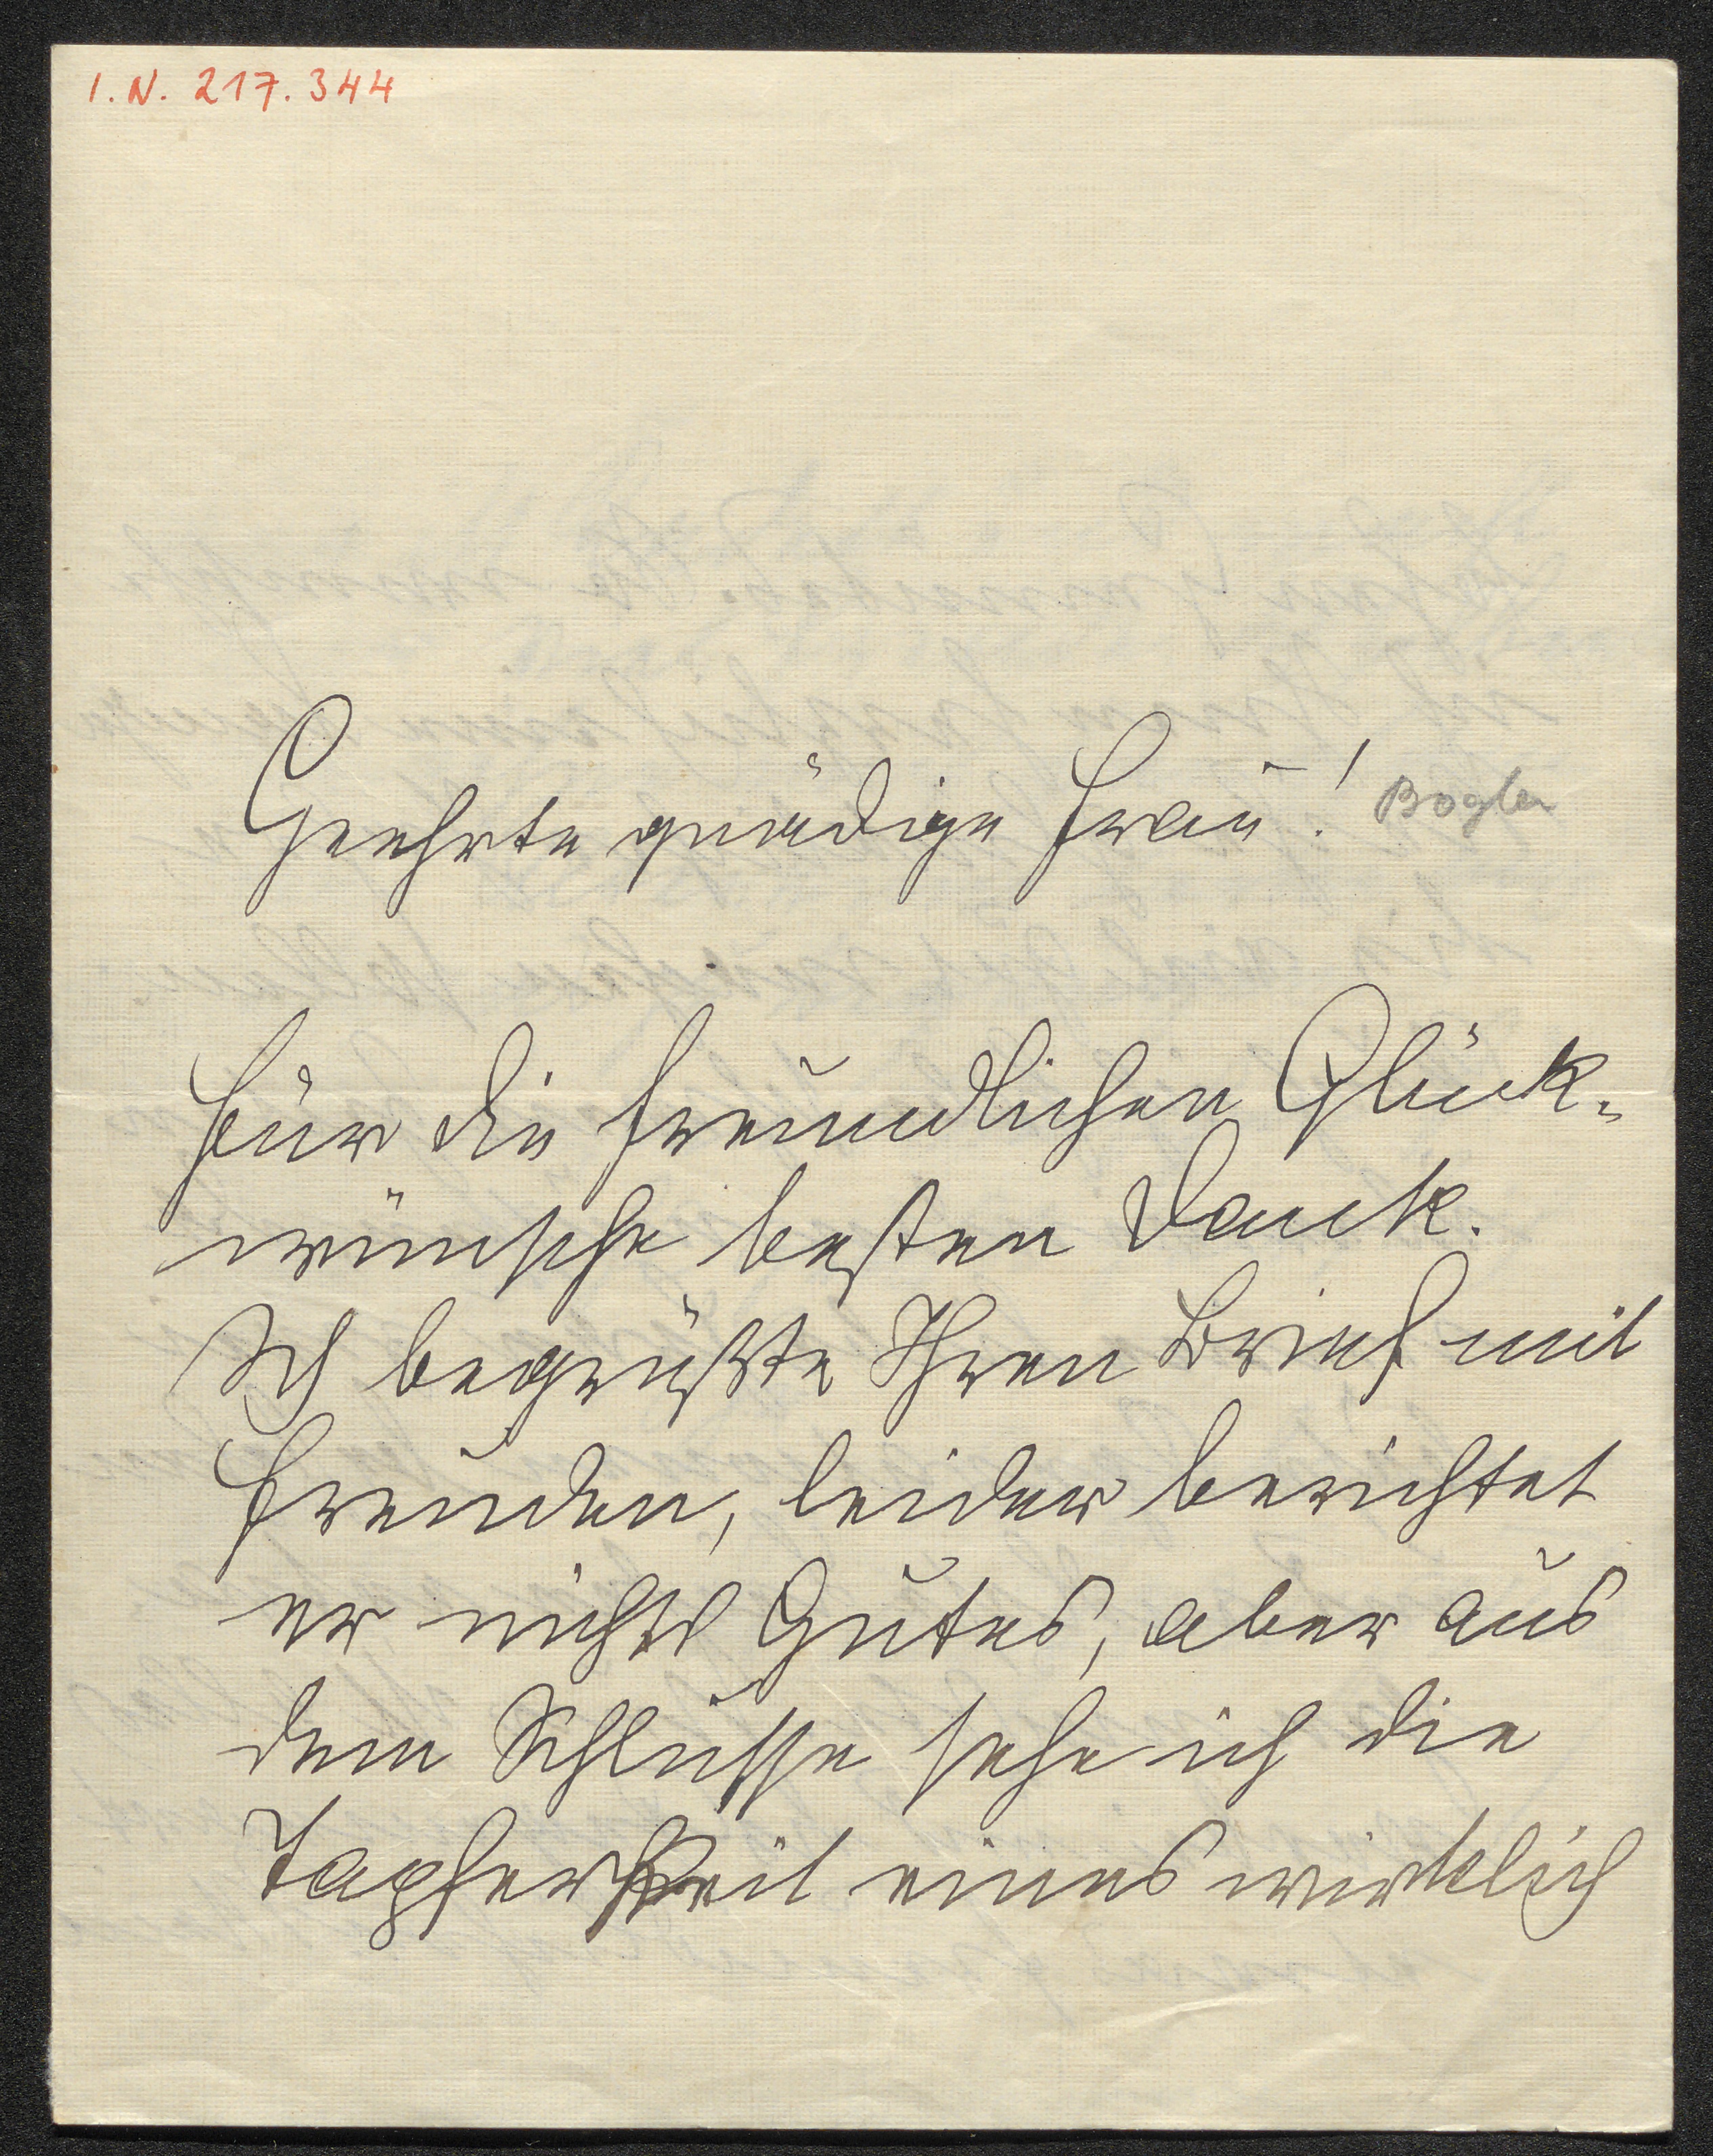 I.N. 217.344
Geehrte gnädige Frau! Bogler
Für die freundlichen Glück-
wünsche besten Dank.
Ich begrüßte Ihren Brief mit
Freuden, leider berichtet
er nichts Gutes, aber aus
dem Schlusse sehe ich die
Tapferkeit eines wirklich